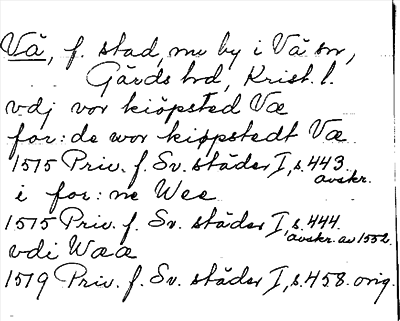 Vä, f. stad, nu by i Vä sn,
Gärds hd, Krist. l.
vdj vor kiöpsted Væ
for: de wor kiøpstedt Væ
1515 Priv. f. Sv. städer I, s. 443.
avskr.
i for: ne Wee
1515 Priv. f. Sv. städer I, s. 444.
avskr. av 1552.
vdi Waa
1519 Priv. f. Sv. städer I, s. 458. orig.